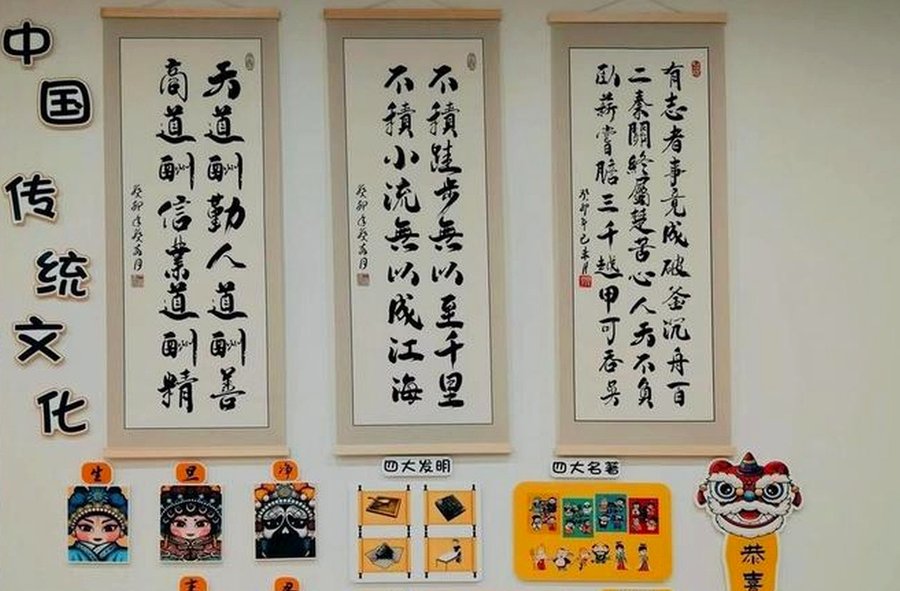 中国传统文化
天道酬勤人道酬善
商道酬信業道酬精
癸卯年癸亥月
不積跬步無以至千里
不積小流無以成江海
癸卯年癸亥月
有志者事竟成破釜沉舟百
二秦關終屬楚苦心人天不負
臥薪嘗膽三千越甲可吞吴
癸卯年己未月
生
旦
净
四大发明
四大名著
恭喜